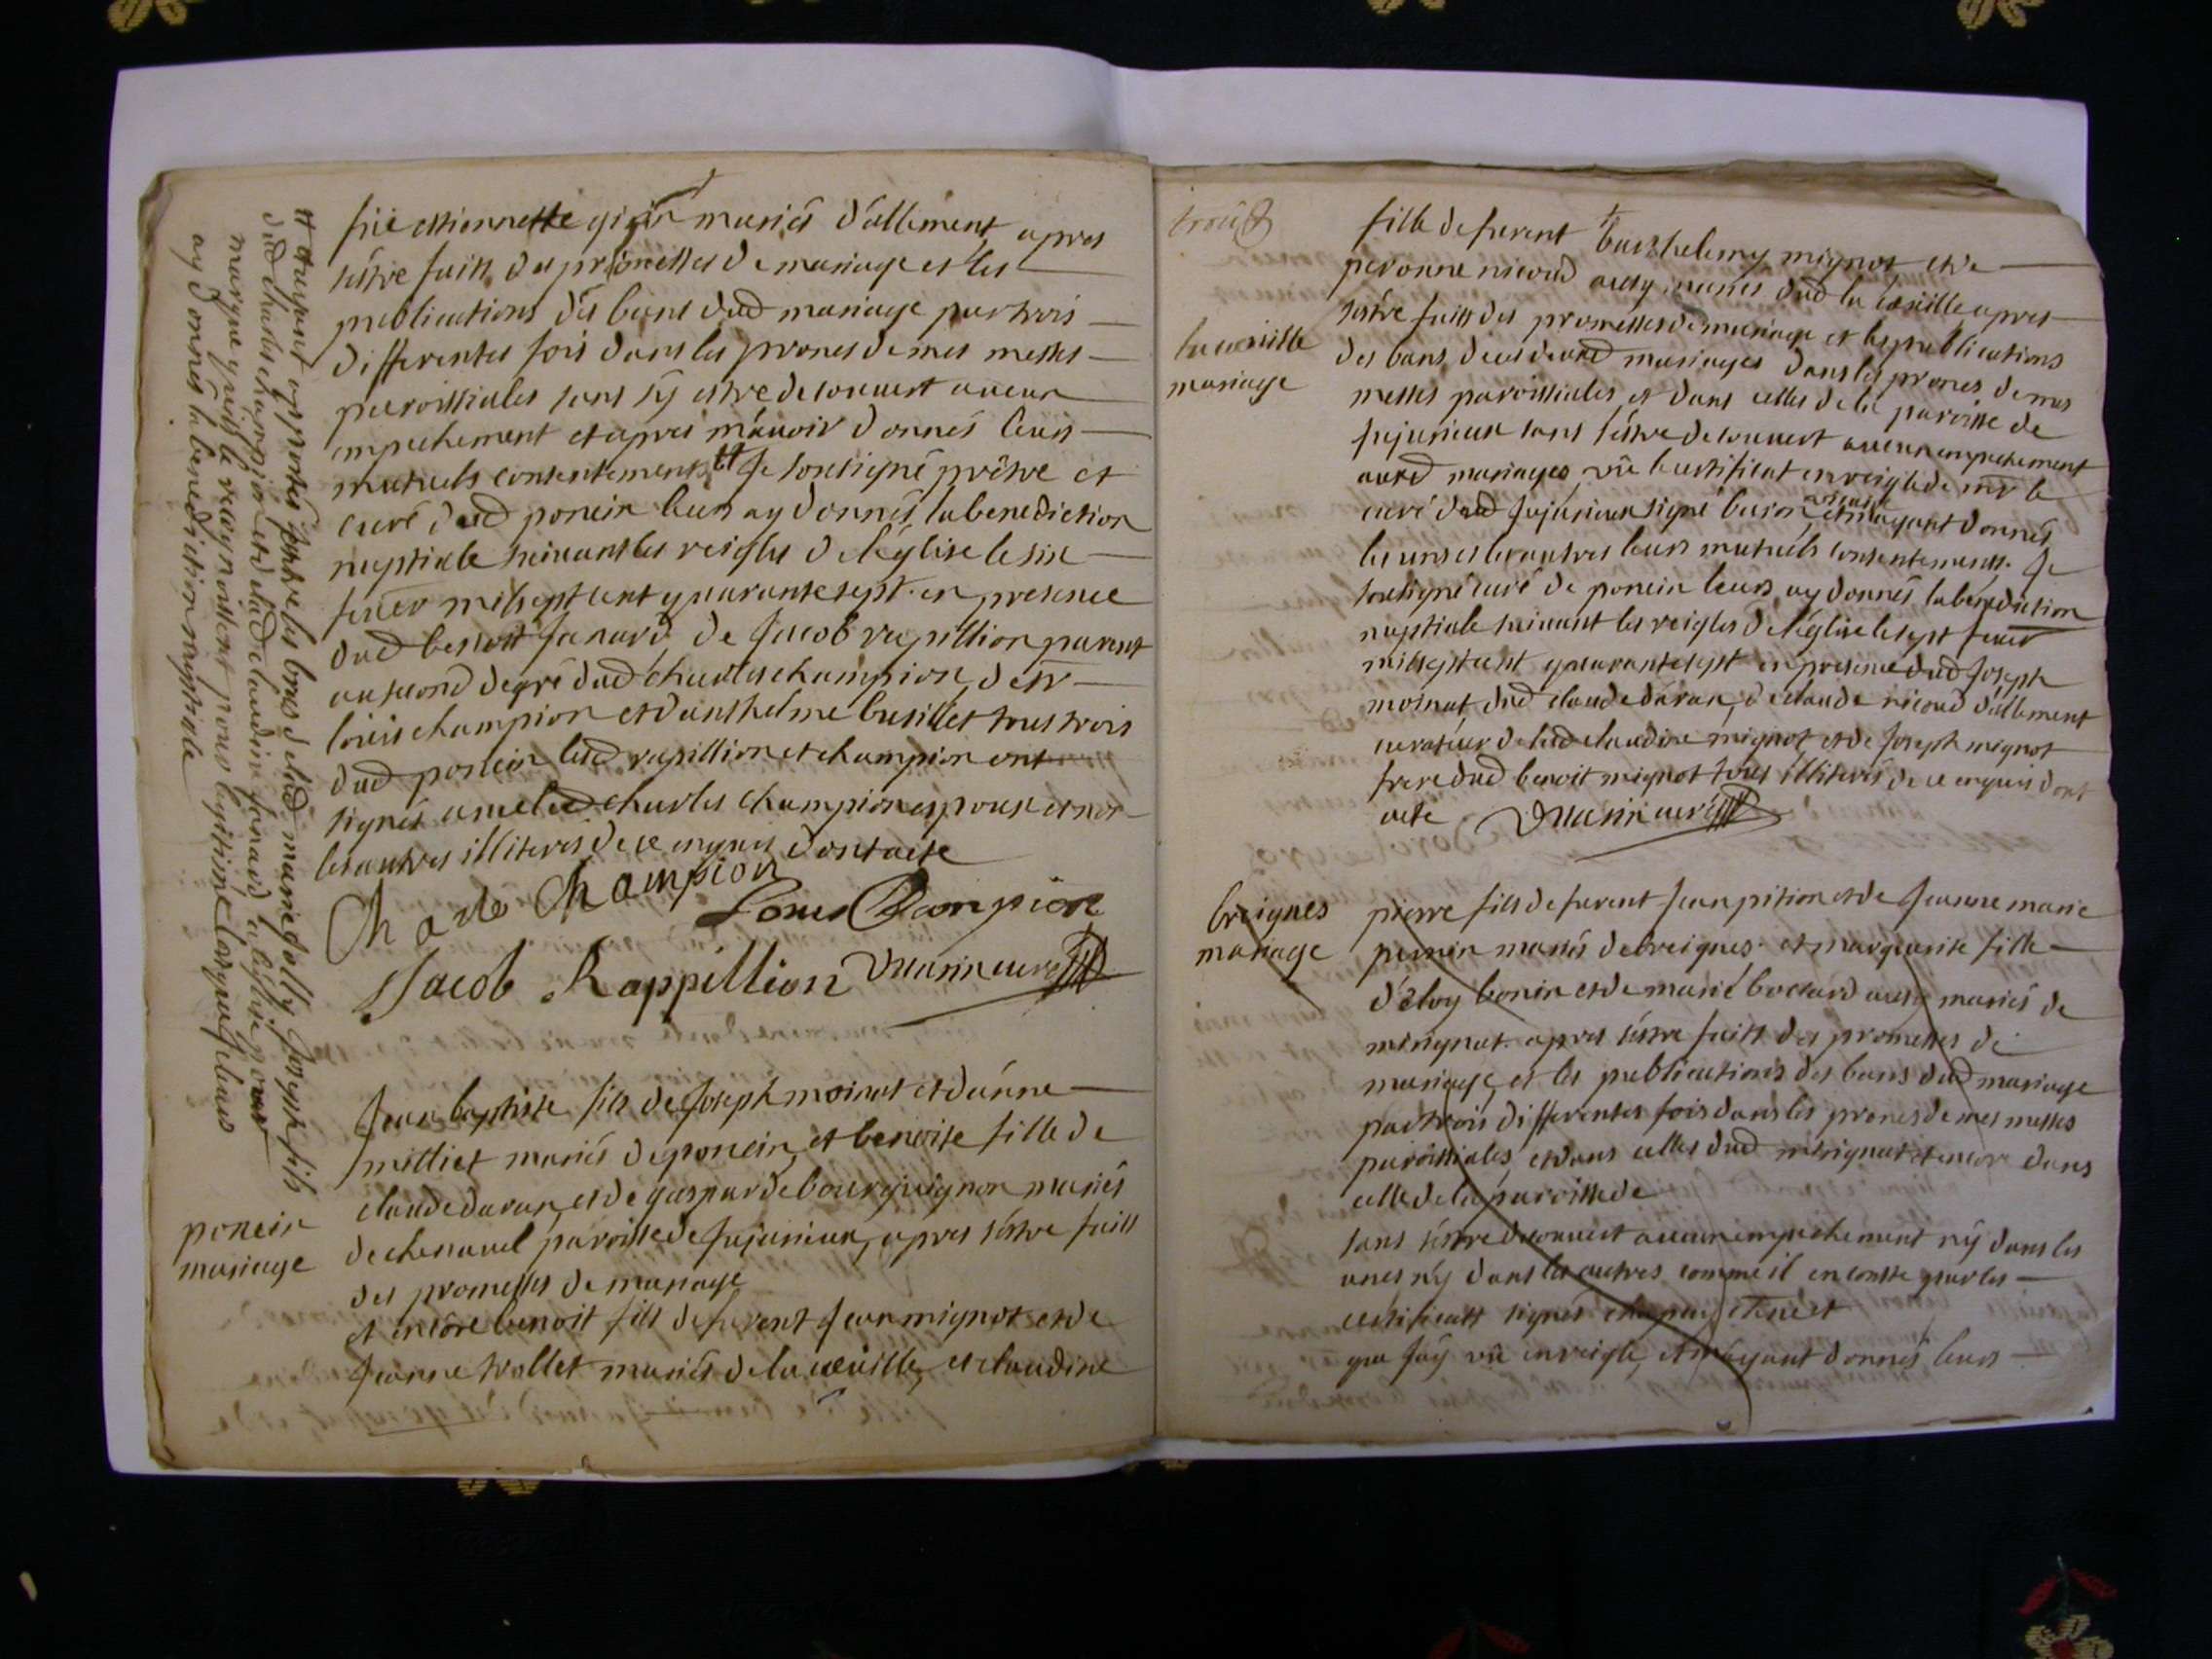 feüe estiennette girin mariés d'allement apres
s'estre faitt des promesses de mariage et les
publications des bans dud mariage par trois
differentes fois dans les prones de mes messes
paroissiales sans s'y estre decouvert aucun
empechement et apres m'avoir donnés leurs
mutuels consentements tt Je soussigné prêtre et
curé dud poncin leurs ay donnés la benediction
nuptiale suivant les reigles de l'église le six
fever mil sept cent quarante sept en presence
dud benoit Janard, de Jacob rapillion parent
au second degré dud charles champion, de sr
loüis champion et d'anthelme busillet tous trois
dud poncin led rapillion et champion ont
signés avec led charles champion espoux et non
les autres illiteres de ce enquis dont acte
Charle Champion
Louis Champion
Jacob Rappillion
Duarin curé
tt et ayant apportés sous les bras de lad marie Joseph fils
dud charles champion et de lad claudine Janard à l'église pour
marque qu'ils le recognoissent pour legitime lesquels je leurs
ay donnés la benediction nuptiale
poncin
mariage
Jean baptiste fils de Joseph moinat et d'anne
milliet mariés de poncin, et benoite fille de
claude daran et de gasparde bourguignon mariés
de chenavel paroisse de Jujurieux, apres s'estre faitt
des promesses de mariage
et encore benoit fils defurent Jean mignot et de
Jeanne trollet mariés de la coeuille, et claudine
trois
la coeuille
mariage
fille defurent barthelemy mignot et de
peronne nicoud aussy mariés dud la coeuille apres
s'estre faitt des promesses de mariage et les publications
des bans de cesd mariages dans les prones de mes
messes paroissiales et dans celles de la paroisse de
Jujurieux sans s'estre decouvert aucun empechement
auxd mariages, vüe le certificat en reigle de mr le
curé dud Jujurieux signé buison vicaire et m'ayant donnés
les uns et les autres leurs mutuels consentements. Je
soussigné curé de poncin leurs ay donnés la benediction
nuptiale suivant les reigles de l'église le sept fever
mil sept cent quarante sept en presence dud Joseph
moinat, dud claude daran, de claude nicoud d'allement
curateur de lad claudine mignot et de Joseph mignot
frere dud benoit mignot tous illiterés de ce enquis dont
acte Duarin curé
breignes
mariage
pierre fils defurent Jean pition et de Jeanne marie
perrin mariés de breignes et marguerite fille
d'éloy bonin et de marie bottard aussy mariés de
merignat apres s'estre faitt des promesses de
mariage, et les publications des bans dud mariage
par trois differentes fois dans les prones de mes messes
paroissiales, et dans celles dud merignat et encore dans
celle de la paroisse de
sans s'estre decouvert aucun empechement ny dans les
unes n'y dans les autres comme il en conste par les
certificatt signés
que J'ay vüe en reigle, et m'ayant donnés leurs